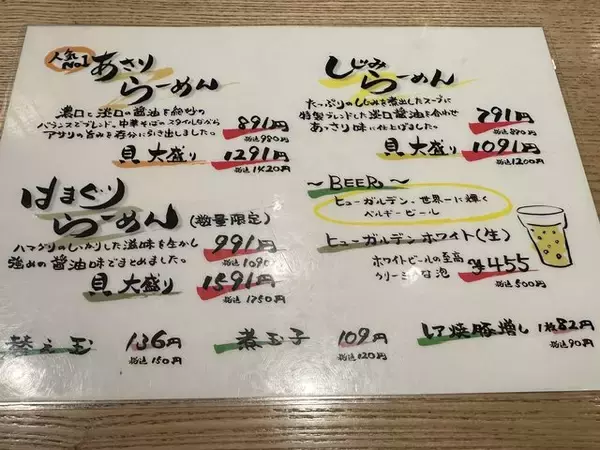 人気No1
あさり
らーめん
濃口と淡口の醤油を絶妙の
バランスでブレンド。中華そばのスタイルながら
アサリの旨みを存分に引き出しました。
891円
税込980円
貝 大盛り 1291円
税込1420円
しじみ
らーめん
たっぷりのしじみを煮出したスープに
特製ブレンドした淡口醤油を合わせ
あっさり味に仕上げました。
791円
税込870円
貝 大盛り 1091円
税込1200円
はまぐり
らーめん (数量限定)
ハマグリのしっかりした滋味を生かし
強めの醤油味でまとめました。
991円
税込1090円
貝 大盛り 1591円
税込1750円
～BEER～
ヒューガルデン、世界一に輝く
ベルギービール
ヒューガルデンホワイト(生)
ホワイトビールの至高
クリーミーな泡
¥455
税込500円
替え玉 136円
税込150円
煮玉子 109円
税込120円
レア焼豚増し 1枚82円
税込90円